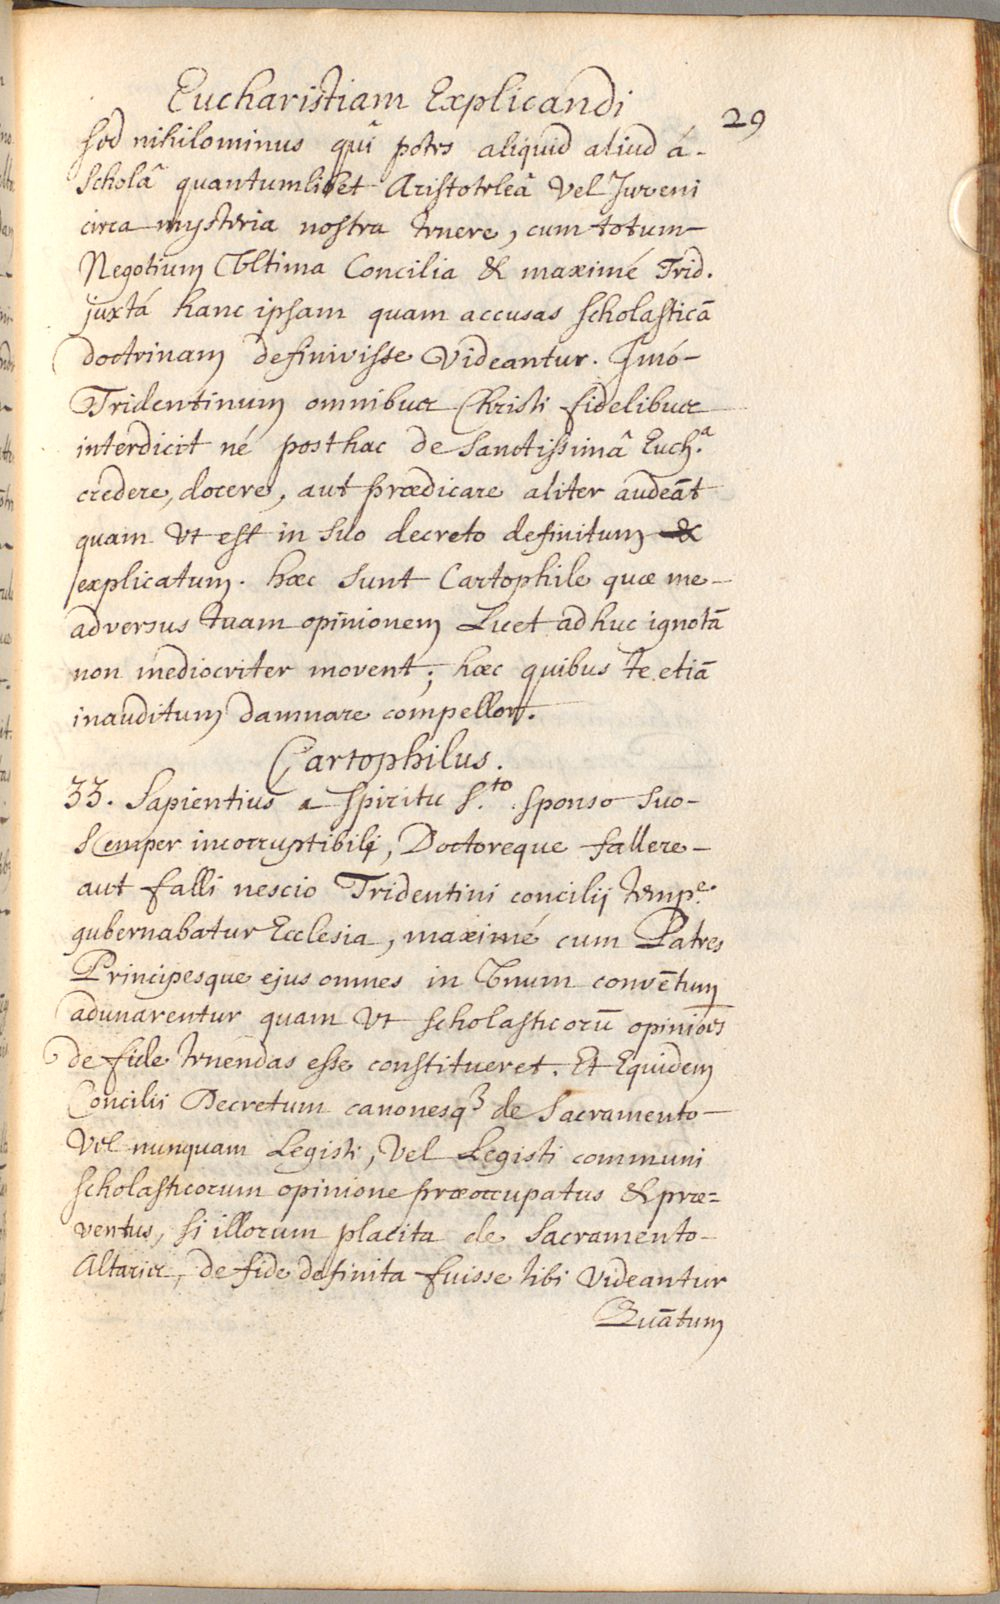 Eucharistiam Explicandi
29
sed nihilominus quî potes aliquid aliud á
scholâ quantumlibet Aristoteleâ vel Juveni
circa mysteria nostra tenere, cum totum
Negotium Ultima Concilia & maximé Trid.
juxtá hanc ipsam quam accusas scholasticā
doctrinam definivisse videantur. Imó
Tridentinum omnibus Christi fidelibus
interdicit né posthac de Sanctissimâ Euch.ª
credere, docere, aut prædicare aliter audeāt
quam ut est in suo decreto definitum &
explicatum. hæc sunt Cartophile quæ me
adversus tuam opinionem Licet adhuc ignotā
non mediocriter movent; hæc quibus te etiā
inauditum damnare compellor.
Cartophilus.
33. Sapientius a spiritu S.to sponso suo
semper incorruptibili, Doctoreque fallere
aut falli nescio Tridentini concilij tempe.
gubernabatur Ecclesia, maximé cum Patres
Principesque ejus omnes in Unum convētum
adunarentur quam ut scholasticorū opiniões
de fide tenendas esse constitueret. Et Equidem
Concilii Decretum canonesq3 de Sacramento
vel nunquam Legisti, vel Legisti communi
scholasticorum opinione præoccupatus & præ=
ventus, si illorum placita de Sacramento
Altaris, de fide definita fuisse tibi videantur
Quātum